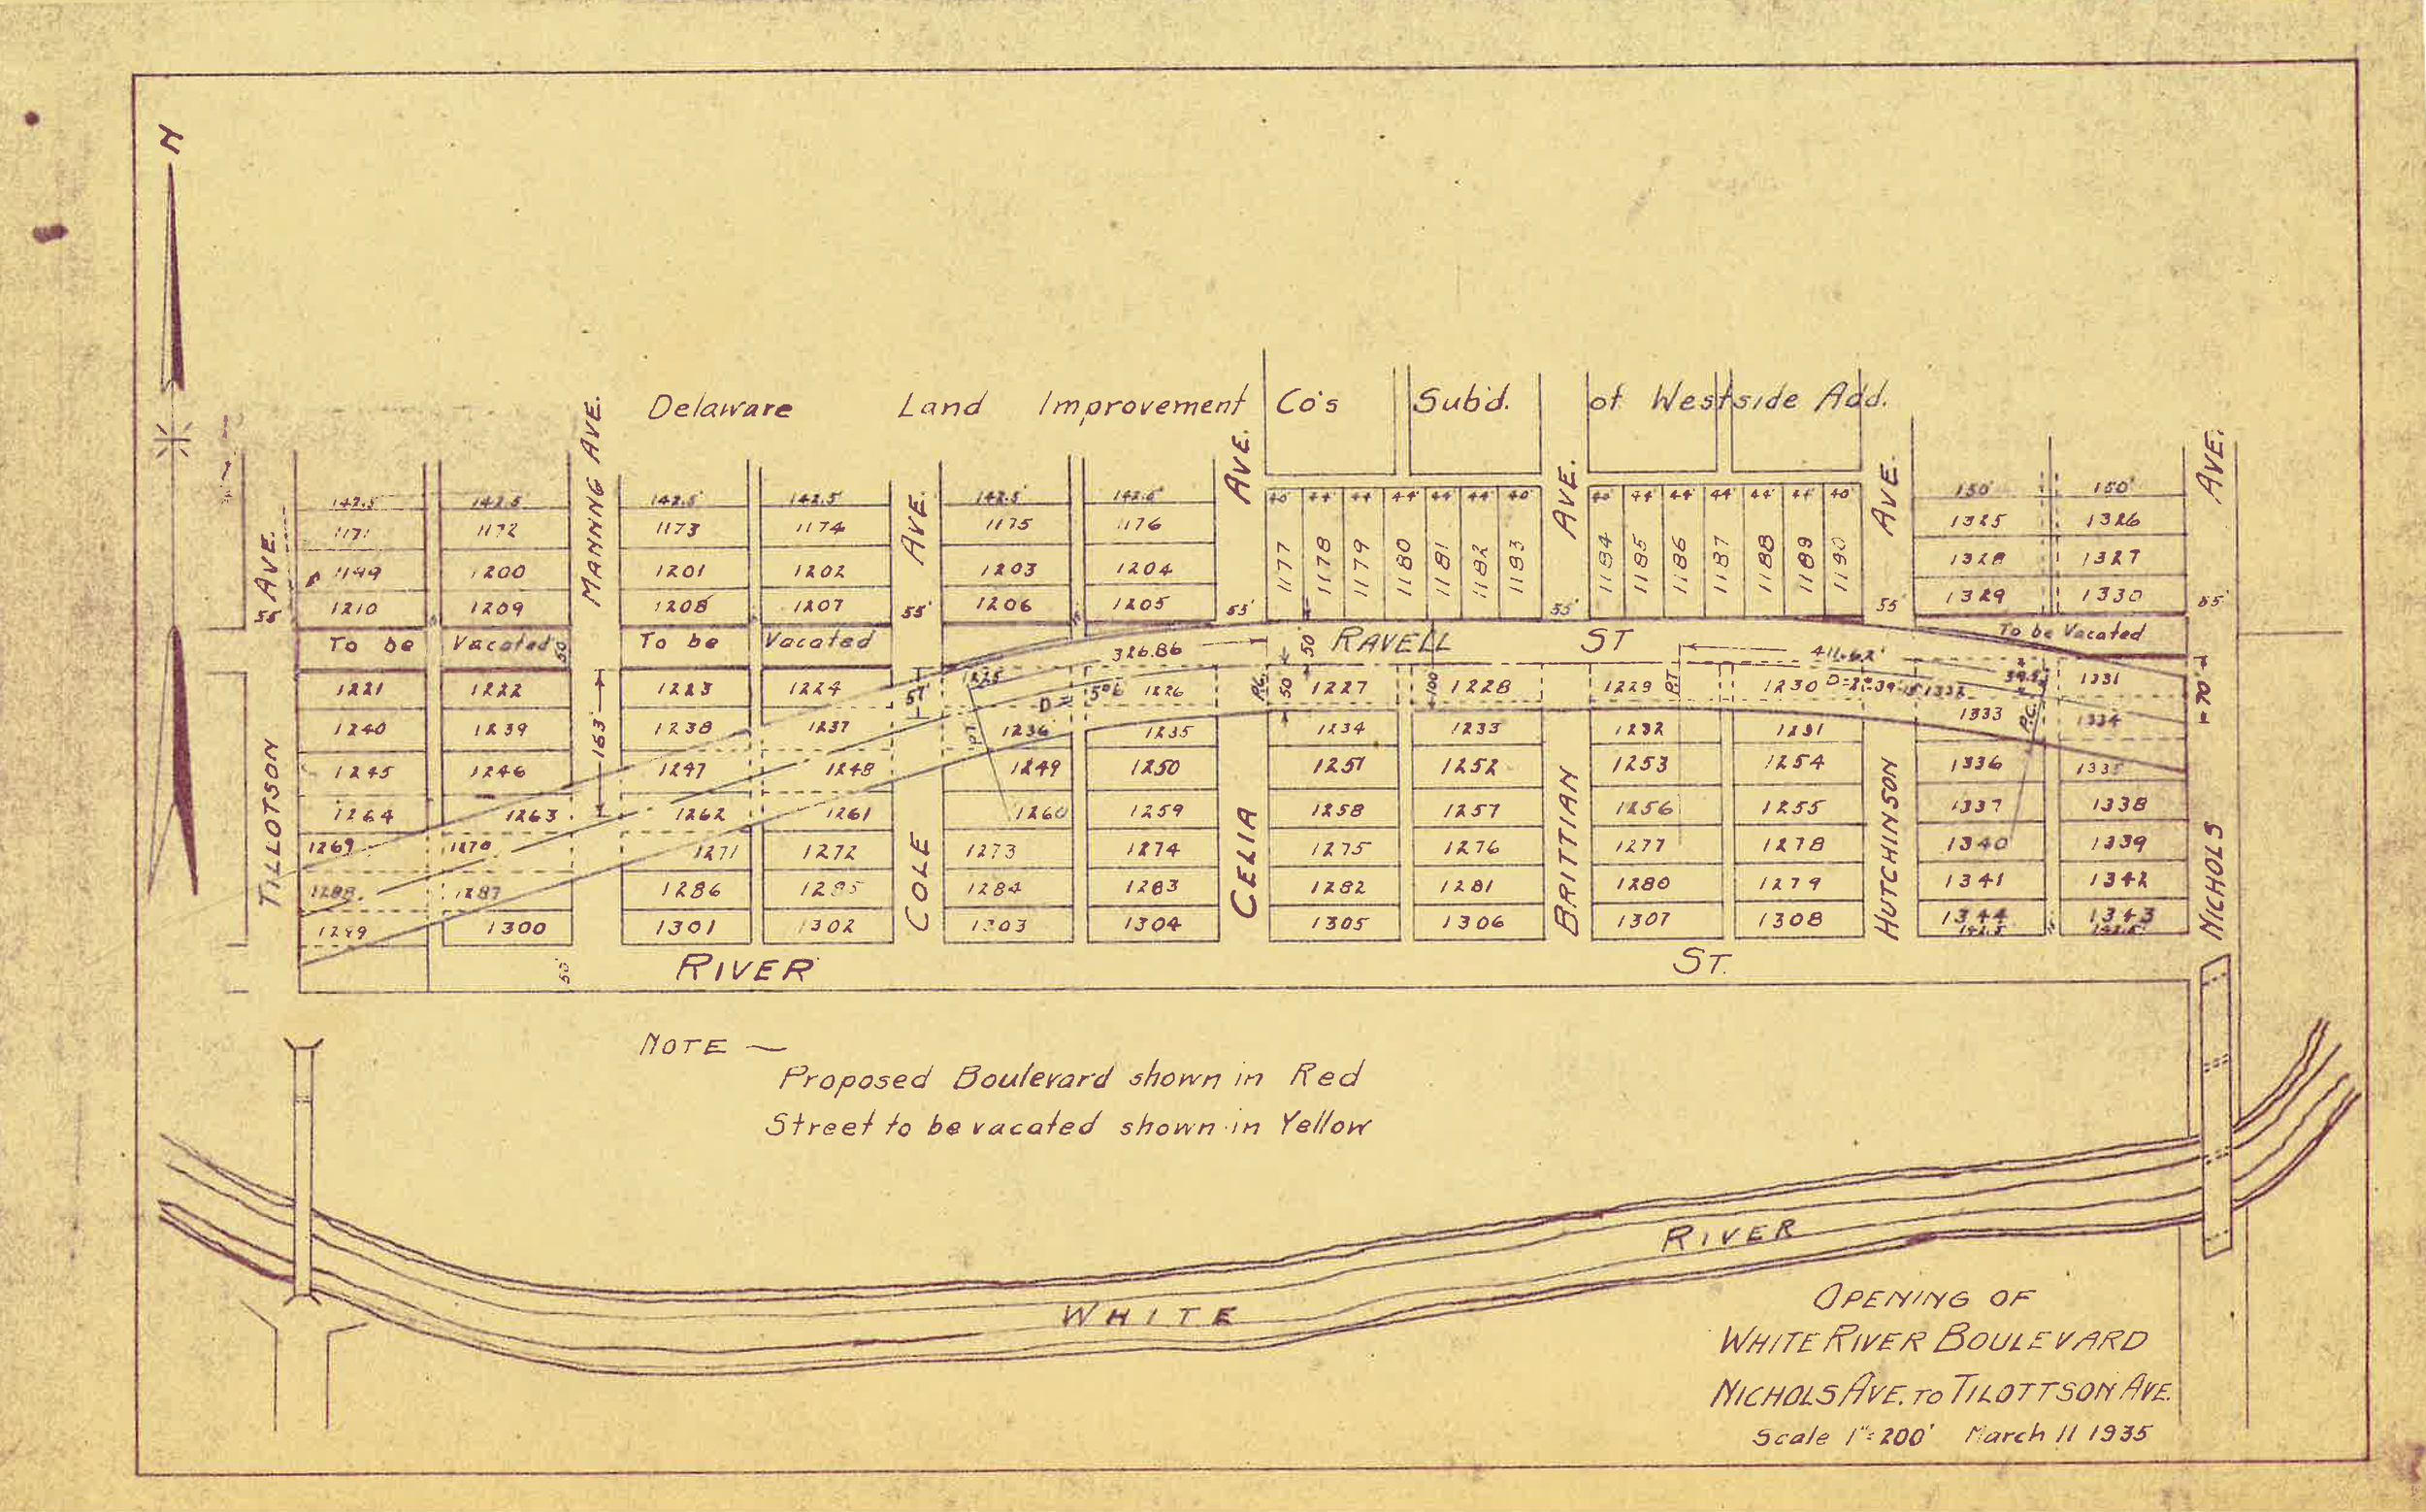 N
Delaware Land Improvement Co's Sub'd. of Westside Add.
TILLOTSON AVE.
MANNNG AVE.
COLE AVE.
CELIA AVE.
BRITTIAN AVE.
HUTCHINSON AVE.
NICHOLS AVE.
142.5' 142.5 142.5' 142.5' 142.5' 142.5' 40' 44' 44 44' 44' 44' 40' 40' 44' 44' 44' 44' 44' 40' 150' 150'
1171 1172 1173 1174 1175 1176 1325 1326
1177 1178 1179 1180 1181 1182 1183 1184 1185 1186 1187 1188 1189 1190
1199 1200 1201 1202 1203 1204 1328 1327
1210 1209 1208 1207 1206 1205 1329 1330
55' 55' 55' 55' 55' 55'
To be Vacated 50' To be Vacated 326.86 50' RAVELL ST 411.62' To be Vacated
1221 1222 1223 1224 57' 1225 1226 P.C. 50' 1227 100' 1228 1229 P.T. 1230 1332 1331 70'
1240 1239 163' 1238 1237 P.T. 1236 1235 1234 1233 1232 1231 1333 P.C. 1334
1245 1246 1247 1248 1249 1250 1251 1252 1253 1254 1336 1335
1264 1263 1262 1261 1260 1259 1258 1257 1256 1255 1337 1338
1269 1270 1271 1272 1273 1274 1275 1276 1277 1278 1340 1339
1288 1287 1286 1285 1284 1283 1282 1281 1280 1279 1341 1342
1299 1300 1301 1302 1303 1304 1305 1306 1307 1308 1344 1343
142.5 142.5'
50' RIVER ST.
NOTE —
Proposed Boulevard shown in Red
Street to be vacated shown in Yellow
WHITE RIVER
OPENING OF
WHITE RIVER BOULEVARD
NICHOLS AVE. TO TILOTTSON AVE.
Scale 1"=200' March 11 1935